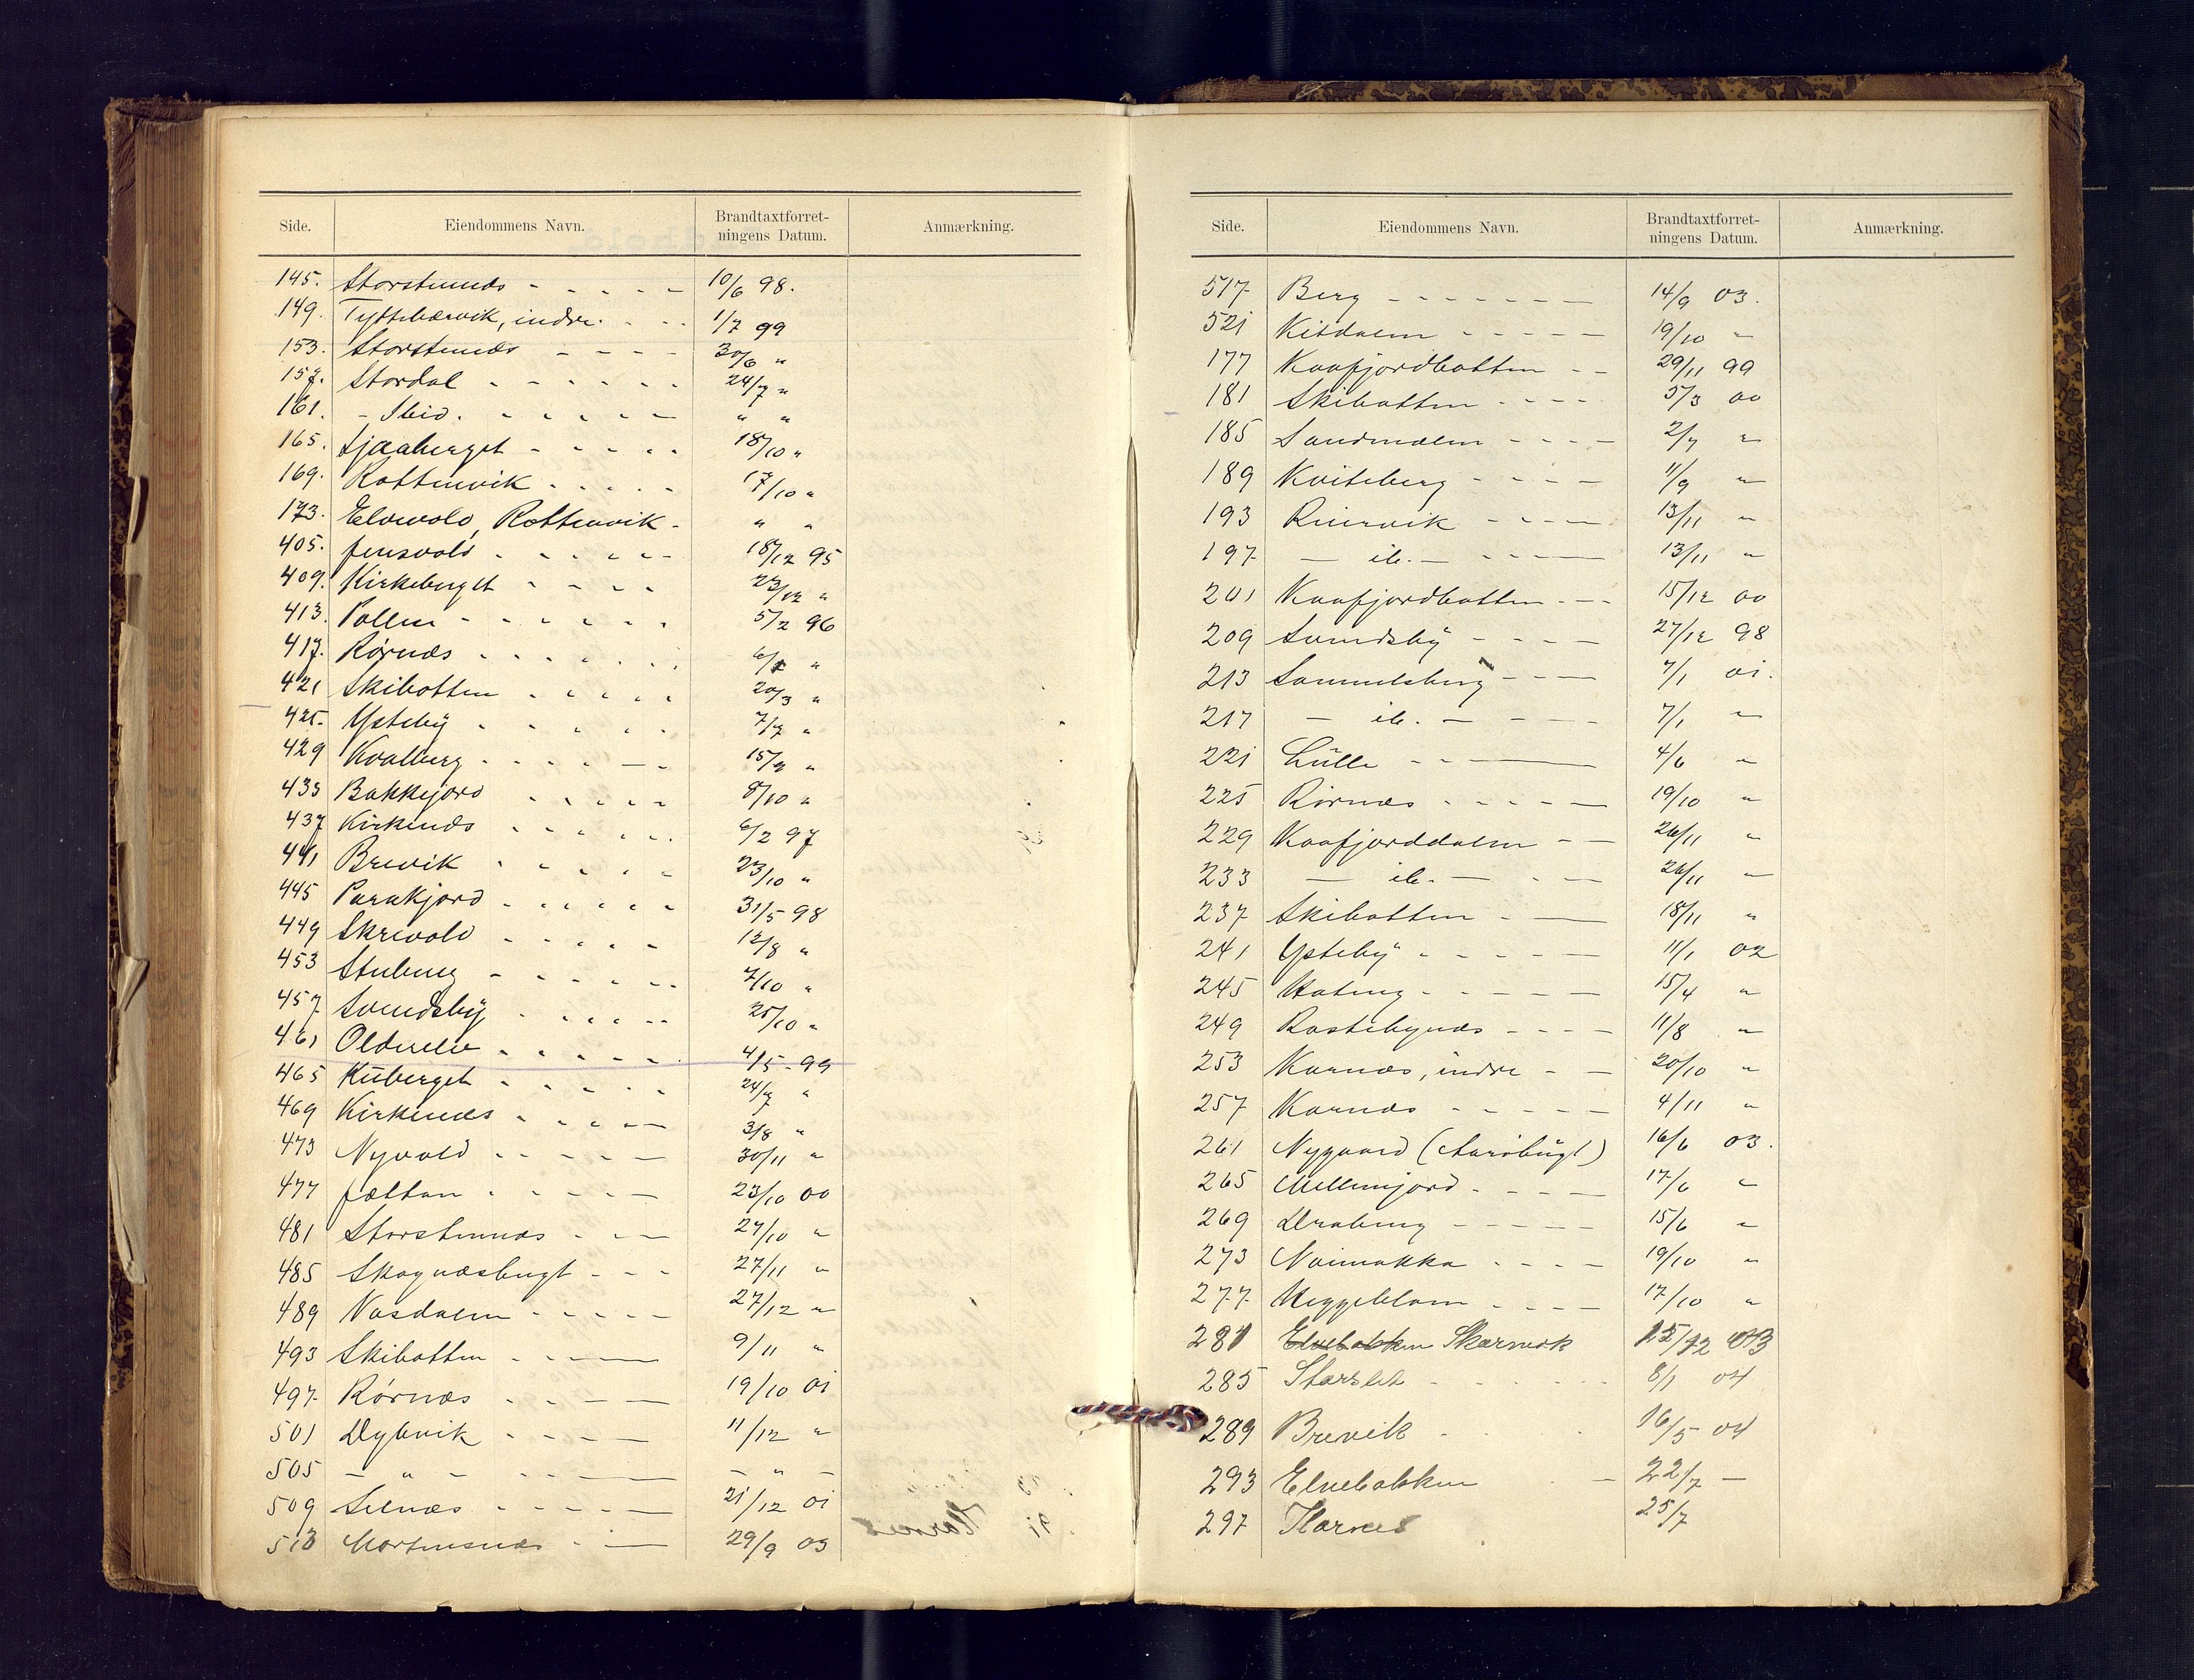 Side. Eiendommens Navn. Brandtaxtforret-ningens Datum. Anmærkning.
145. Storstennæs - - - - - 10/6 98.
149. Tyttebærvik, indre. - - - 1/7 99
153. Storstennæs - - - - 30/6 "
157. Stordal - - - - - - 24/7 "
161. - Ibid. - - - - - - " "
165. Sjaaberget - - - - - 18/10 "
169. Rottenvik - - - - - 17/10 "
173. Elvevold, Rottenvik - " "
405. Jensvold - - - - - - 18/12 95
409. Kirkeberget - - - - 23/12 "
413. Pollen - - - - - - 5/2 96
417. Rørnæs - - - - - - "
421 Skibotten - - - - - 20/3 "
425. Ysteby - - - - - 7/7 "
429 Kvalberg - - - - - - 15/9 "
433 Bakkejord - - - - - 8/10 "
437 Kirkenæs - - - - - - 6/2 97
441 Brevik - - - - - 23/10 "
445 Parakjord - - - - - - 31/5 98
449 Skrevold - - - - - 12/8 "
453 Stuberg - - - - - - 7/10 "
457 Svendsby - - - - - 25/10 "
461 Olderelv - - - - - - 4/5 - 99
465 Kuberget - - - - - 24/7 "
469 Kirkenæs - - - - - 3/8 "
473 Nyvold - - - - - 30/11 "
477 Jættan - - - - - 23/10 00
481 Storstennæs - - - 27/10 "
485 Skognæsbugt - - - 27/11 "
489 Nasdalen - - - - - 27/12 "
493 Skibotten - - - - 9/11 "
497 Rørnæs - - - - - 19/10 01
501 Dybvik - - - - - 11/12 "
505 - " - - - - - - - " -
509 Selnæs - - - - - 21/12 01
513 Mortensnæs - - 29/9 03
Side. Eiendommens Navn. Brandtaxtforret-ningens Datum. Anmærkning.
517 Berg - - - - - - - 14/9 03.
521 Kitdalen - - - - - 19/10 "
177 Kaafjordbotten - - 29/11 99
181 Skibotten - - - - 5/3 00
185 Sandmælen - - - - 2/7 "
189 Kviteberg - - - - 11/9 "
193 Reiervik - - - - 13/11 "
197 - ib. - - - - - 13/11 "
201 Kaafjordbotten - - - 15/12 00
209 Svendsby - - - - 27/12 98
213 Samuelsberg - - - 7/1 01.
217 - ib. - - - - 7/1 "
221 Lülle - - - 4/6 "
225 Rörnæs - - - - - 19/10 "
229 Kaafjorddalen - - 26/11 "
233 - ib. - - - 26/11 "
237 Skibotten - - 18/11 "
241 Ysteby - - - - - 11/1 02
245 Hateng - - - - - 15/4 "
249 Rastebynæs - - - - 11/8 "
253 Karnæs, indre - - 20/10 "
257 Karnæs - - - - - 4/11 "
261 Nygaard (Aarøbugt) 16/6 03.
265 Mellemjord - - - - 17/6 "
269 Draberg - - - - - 15/6 "
273 Noimakka - - - - 19/10 "
277 Heggeblom - - - - 17/10 "
281 Elvebakken Skarnæk 03
285 Storslet - - - - - - 8/1 04
289 Brevik - - 16/5 04
293 Elvebakken - 22/7 -
297 Karnes 25/7